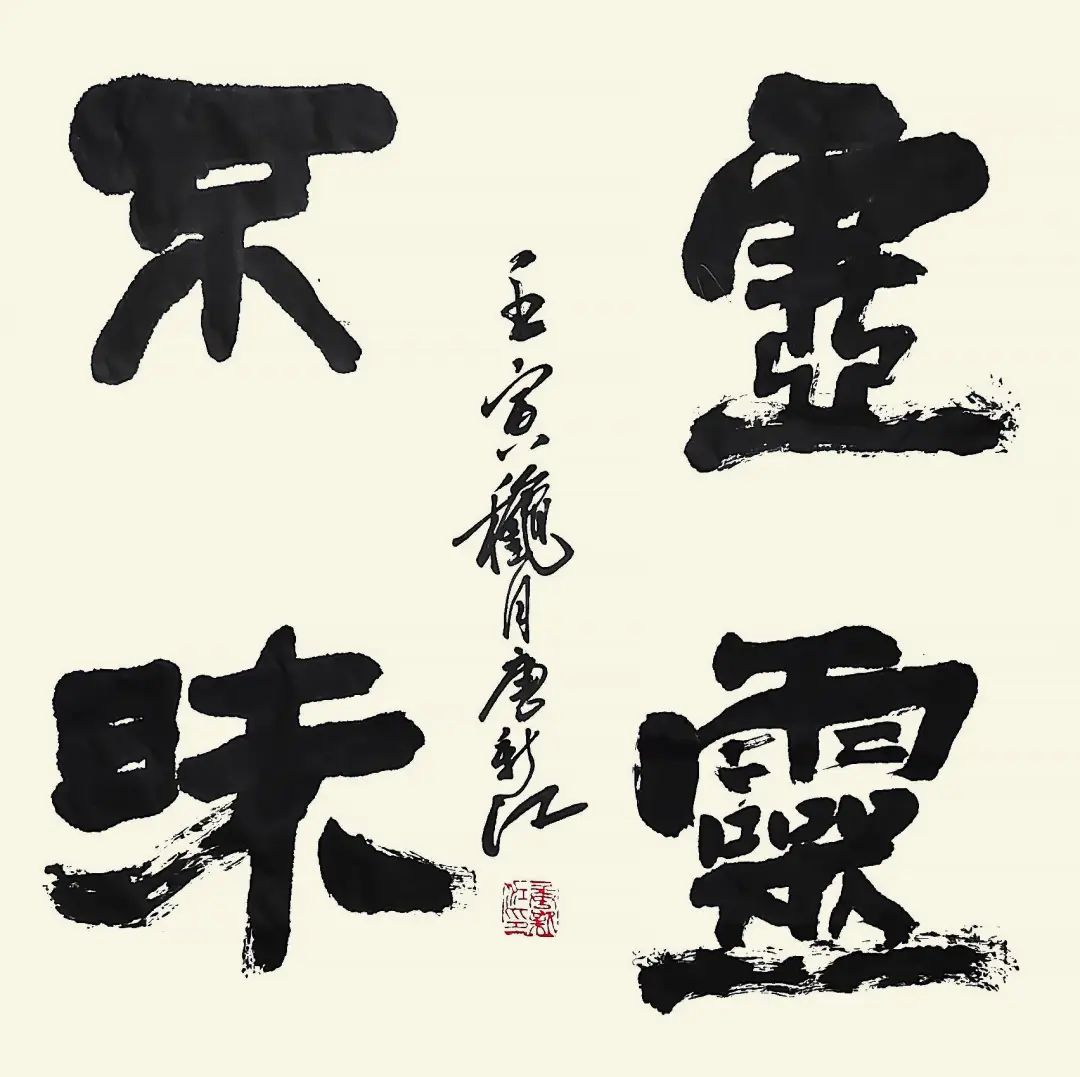 虛靈
不昧
壬寅龝月唐新江
唐新江印